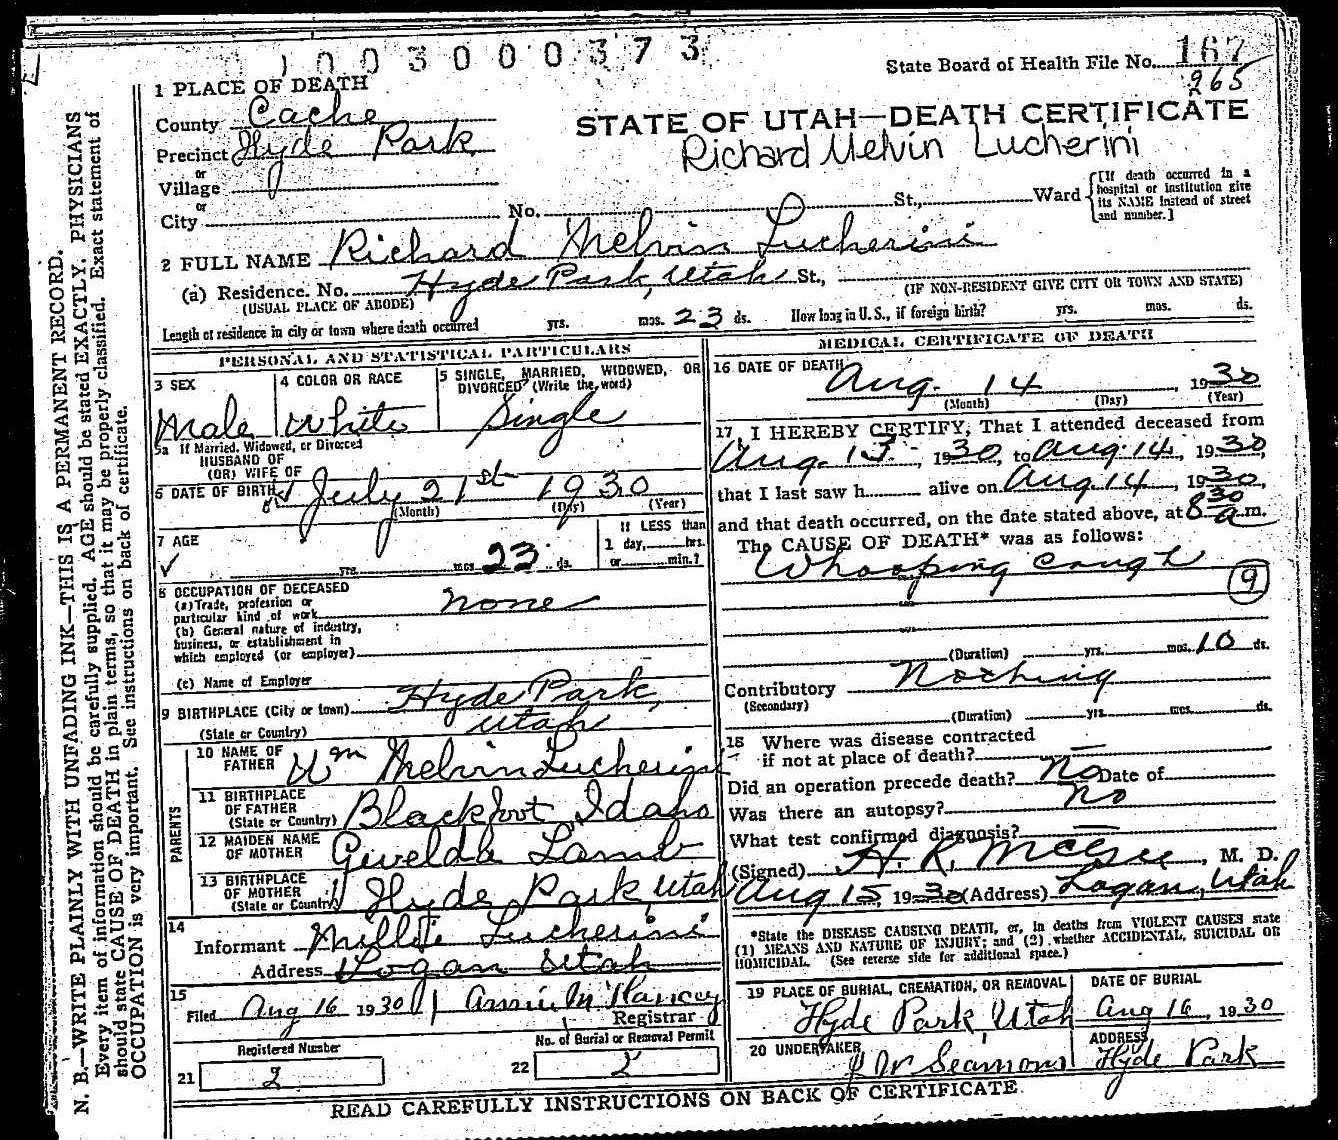 1003000373
State Board of Health File No. 167
265
1 PLACE OF DEATH
County Cache
STATE OF UTAH—DEATH CERTIFICATE
Precinct Hyde Park
Richard Melvin Lucherini
or
Village
or
City No. St., Ward
[If death occurred in a hospital or institution give its NAME instead of street and number.]
2 FULL NAME Richard Melvin Lucherini
(a) Residence. No. Hyde Park, Utah St.,
(USUAL PLACE OF ABODE) (IF NON-RESIDENT GIVE CITY OR TOWN AND STATE)
Length of residence in city or town where death occurred yrs. mos. 23 ds. How long in U. S., if foreign birth? yrs. mos. ds.
PERSONAL AND STATISTICAL PARTICULARS
3 SEX
Male
4 COLOR OR RACE
White
5 SINGLE, MARRIED, WIDOWED, OR DIVORCED (Write the word)
Single
5a If Married, Widowed, or Divorced
HUSBAND OF
(OR) WIFE OF
6 DATE OF BIRTH July 21st 1930
(Month) (Day) (Year)
7 AGE
yrs. mos. 23 ds.
If LESS than
1 day, hrs.
or min.?
8 OCCUPATION OF DECEASED
(a) Trade, profession or
particular kind of work none
(b) General nature of industry,
business, or establishment in
which employed (or employer)
(c) Name of Employer
9 BIRTHPLACE (City or town) Hyde Park,
(State or Country) Utah
PARENTS
10 NAME OF FATHER Wm Melvin Lucherini
11 BIRTHPLACE OF FATHER (State or Country) Blackfoot Idaho
12 MAIDEN NAME OF MOTHER Gwelda Lamb
13 BIRTHPLACE OF MOTHER (State or Country) Hyde Park, Utah
14
Informant Millie Lucherini
Address Logan Utah
15
Filed Aug 16 1930 Annie M Hancey
Registrar
Registered Number
21 2
No. of Burial or Removal Permit
22 2
MEDICAL CERTIFICATE OF DEATH
16 DATE OF DEATH Aug. 14, 1930
(Month) (Day) (Year)
17 I HEREBY CERTIFY, That I attended deceased from
Aug. 13, 1930, to Aug. 14, 1930,
that I last saw h alive on Aug 14, 1930,
and that death occurred, on the date stated above, at 8 30 a.m.
The CAUSE OF DEATH* was as follows:
Whooping cough
9
(Duration) yrs. mos. 10 ds.
Contributory Nothing
(Secondary)
(Duration) yrs. mos. ds.
18 Where was disease contracted
if not at place of death? —
Did an operation precede death? No Date of
Was there an autopsy? No
What test confirmed diagnosis? —
(Signed) H. R. McGee, M. D.
Aug 15, 1930 (Address) Logan, Utah
*State the DISEASE CAUSING DEATH, or, in deaths from VIOLENT CAUSES state
(1) MEANS AND NATURE OF INJURY; and (2) whether ACCIDENTAL, SUICIDAL OR
HOMICIDAL. (See reverse side for additional space.)
19 PLACE OF BURIAL, CREMATION, OR REMOVAL
Hyde Park, Utah
DATE OF BURIAL
Aug 16, 1930
20 UNDERTAKER
Seamons
ADDRESS
Hyde Park
READ CAREFULLY INSTRUCTIONS ON BACK OF CERTIFICATE.
N. B.—WRITE PLAINLY WITH UNFADING INK—THIS IS A PERMANENT RECORD.
Every item of information should be carefully supplied. AGE should be stated EXACTLY. PHYSICIANS
should state CAUSE OF DEATH in plain terms, so that it may be properly classified. Exact statement of
OCCUPATION is very important. See instructions on back of certificate.